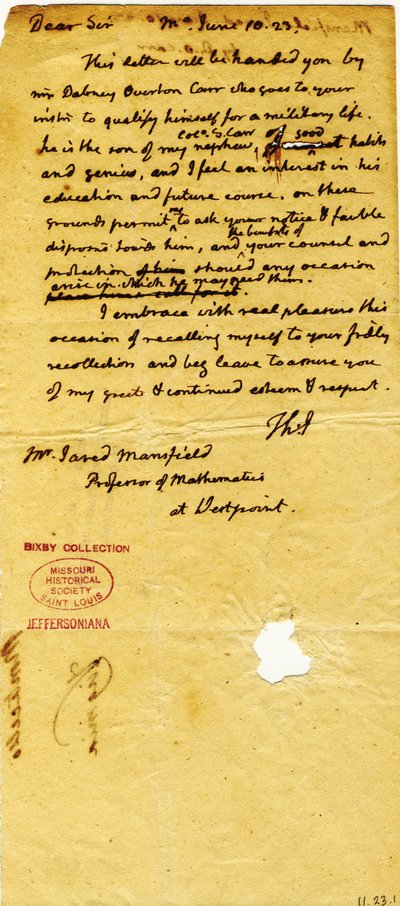 Dear Sir M. June 10. 23.
This letter will be handed you by
mr Dabney Overton Carr who goes to your
instn to qualify himself for a military life.
he is the son of my nephew, Colo. S. Carr of good habits
and genius, and I feel an interest in his
education and future course. on these
grounds permit me to ask your notice & favble
disposns towds him, and the benefits of your counsel and
protection of him should any occasion
arise in which he may need them.
I embrace with real pleasure this
occasion of recalling myself to your frdly
recollection and beg leave to assure you
of my great & continued esteem & respect.
Th:J
Mr. Jared Mansfield
Professor of Mathematics
at Westpoint.
BIXBY COLLECTION
MISSOURI
HISTORICAL
SOCIETY
SAINT LOUIS
JEFFERSONIANA
11.23.1